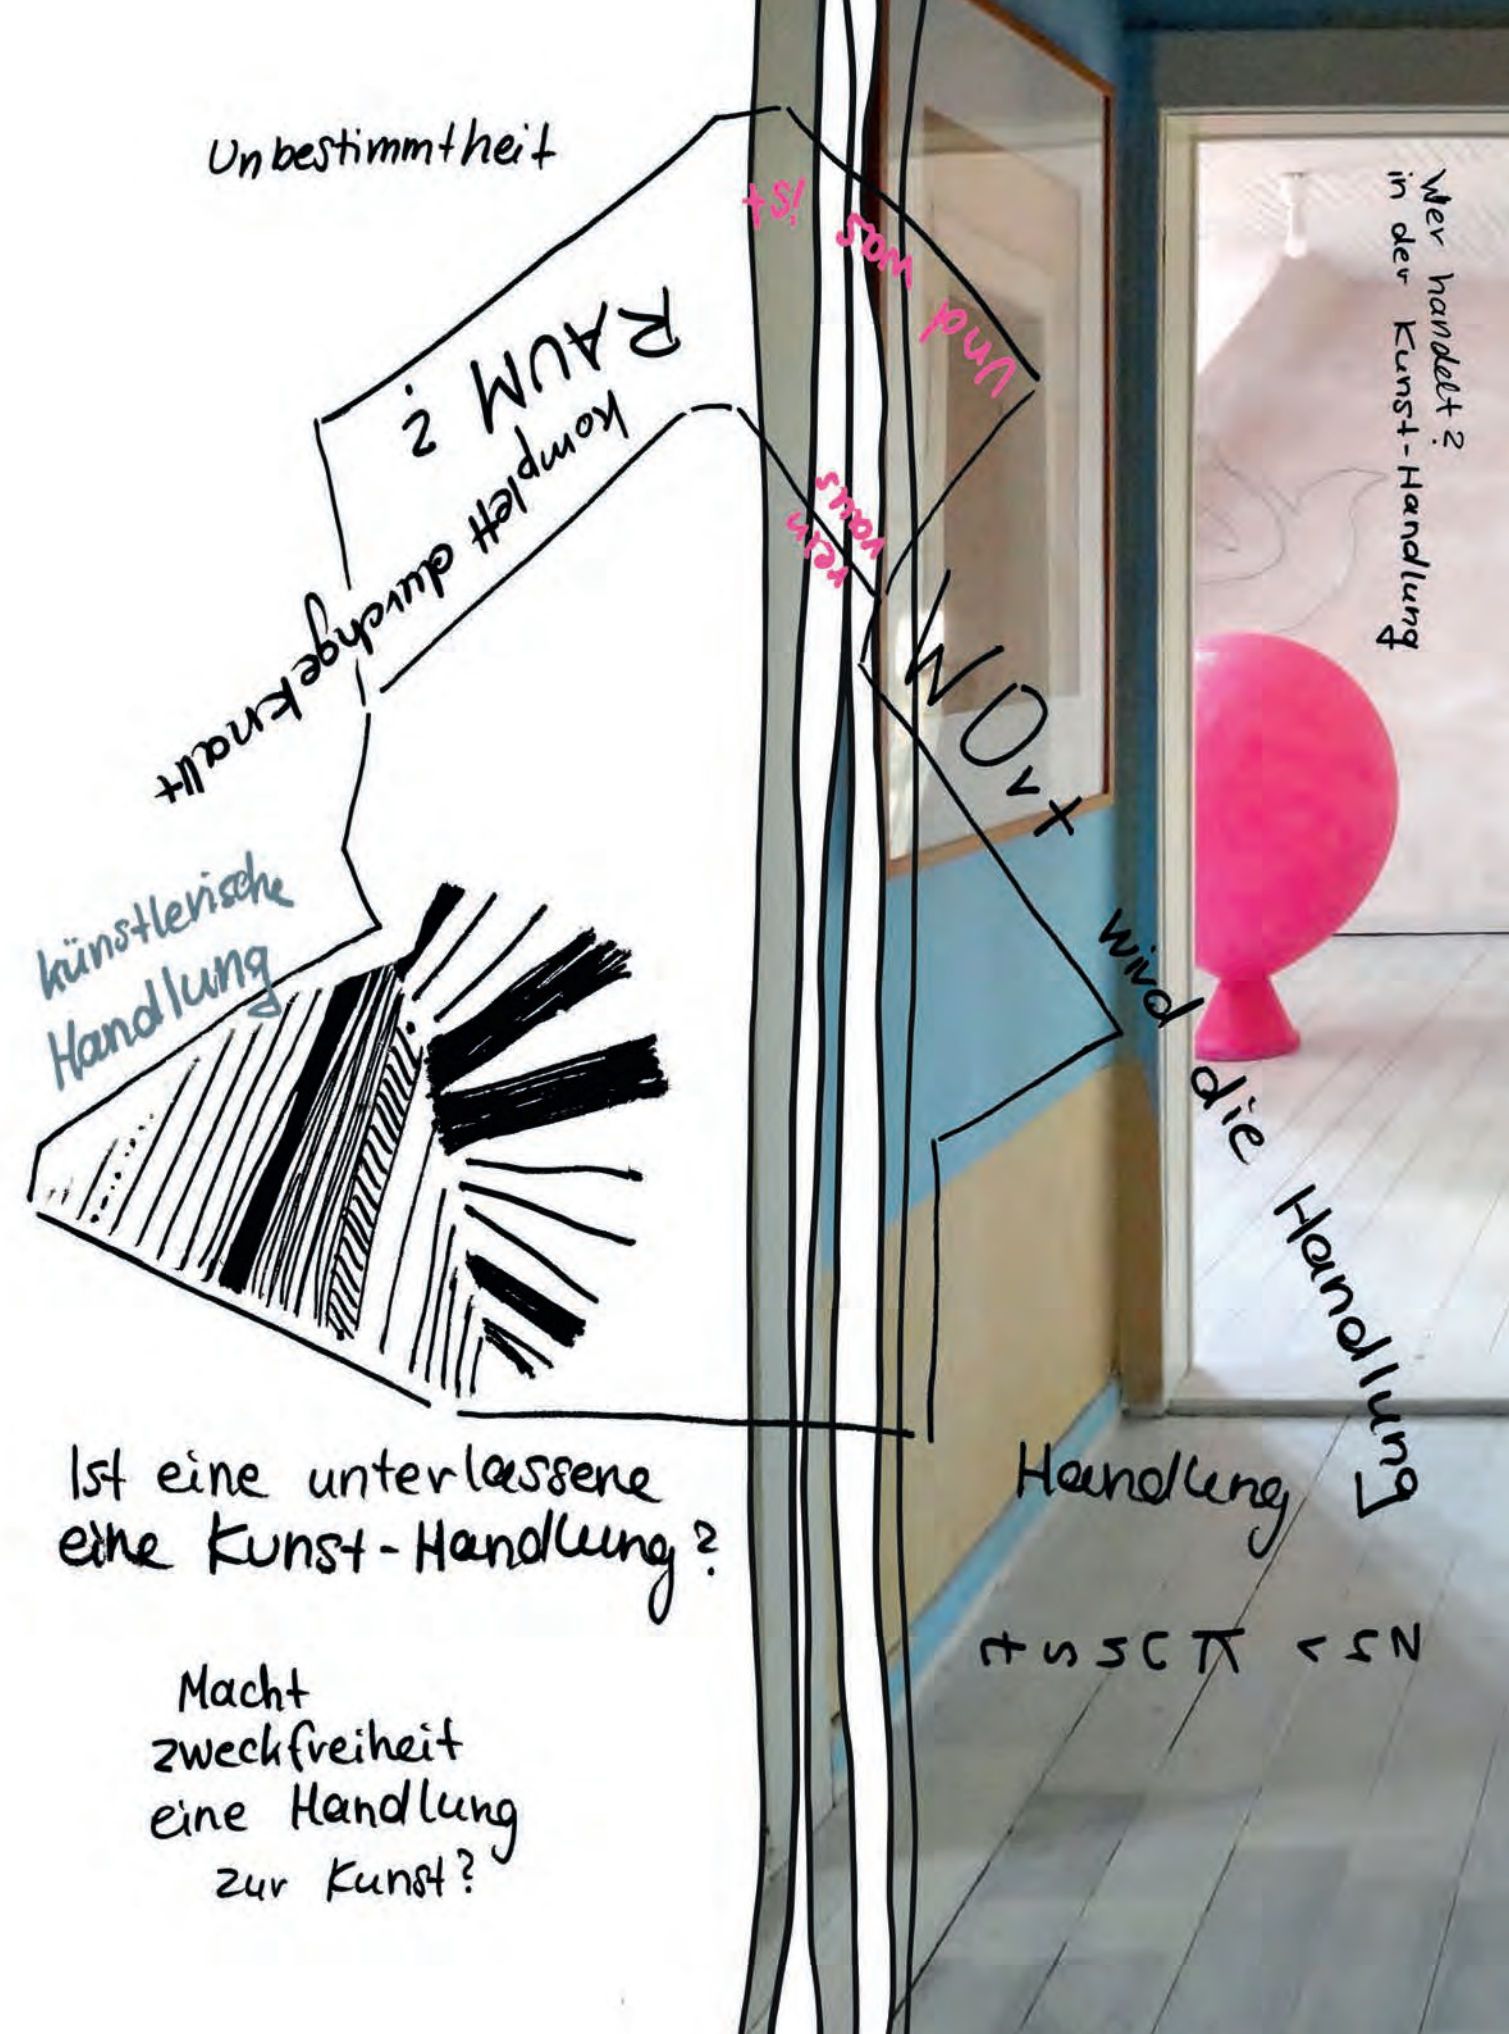 Unbestimmtheit
Und was ist
RAUM?
komplett durchgeknallt
rein
raus
Wer handelt?
in der Kunst-Handlung
Wort wird die Handlung
künstlerische
Handlung
Ist eine unterlassene Handlung
eine Kunst-Handlung?
Macht
zweckfreiheit
eine Handlung
zur Kunst?